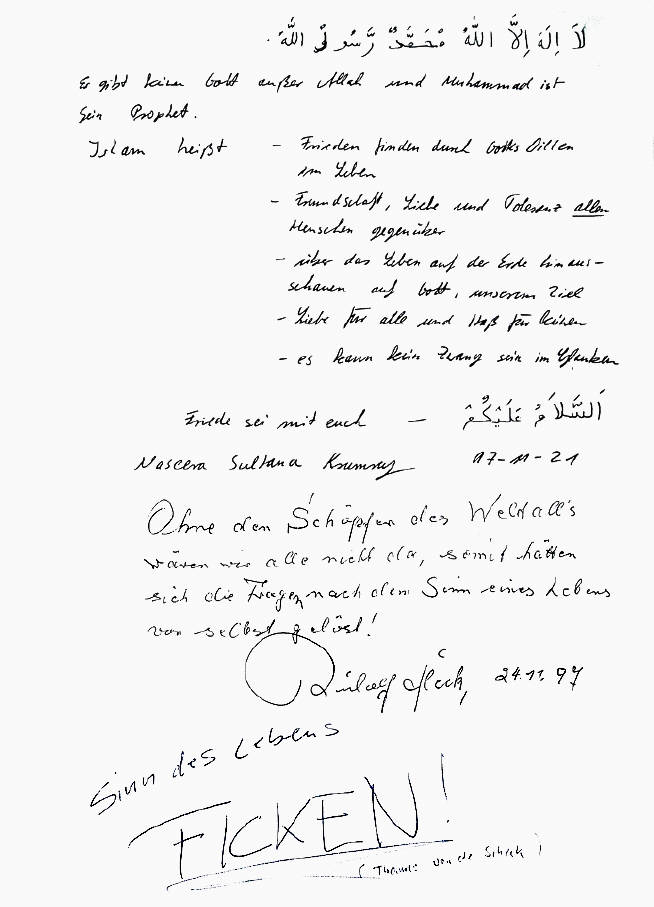 لَا إِلٰهَ إِلَّا اللّٰهُ مُحَمَّدٌ رَّسُولُ اللّٰهِ
Es gibt keinen Gott außer Allah und Muhammad ist
sein Prophet.
Islam heißt – Frieden finden durch Gottes Willen
im Leben
– Freundschaft, Liebe und Toleranz allen
Menschen gegenüber
– über das Leben auf der Erde hinaus-
schauen auf Gott, unserem Ziel
– Liebe für alle und Haß für keinen
– es kann kein Zwang sein im Glauben
Friede sei mit euch – اَلسَّلَامُ عَلَيْكُمْ
Naseera Sultana 97-11-21
Ohne den Schöpfer des Weltall's
wären wir alle nicht da, somit hätten
sich die Fragen nach dem Sinn eines Lebens
von selbst gelöst!
24.11.97
Sinn des Lebens
FICKEN!